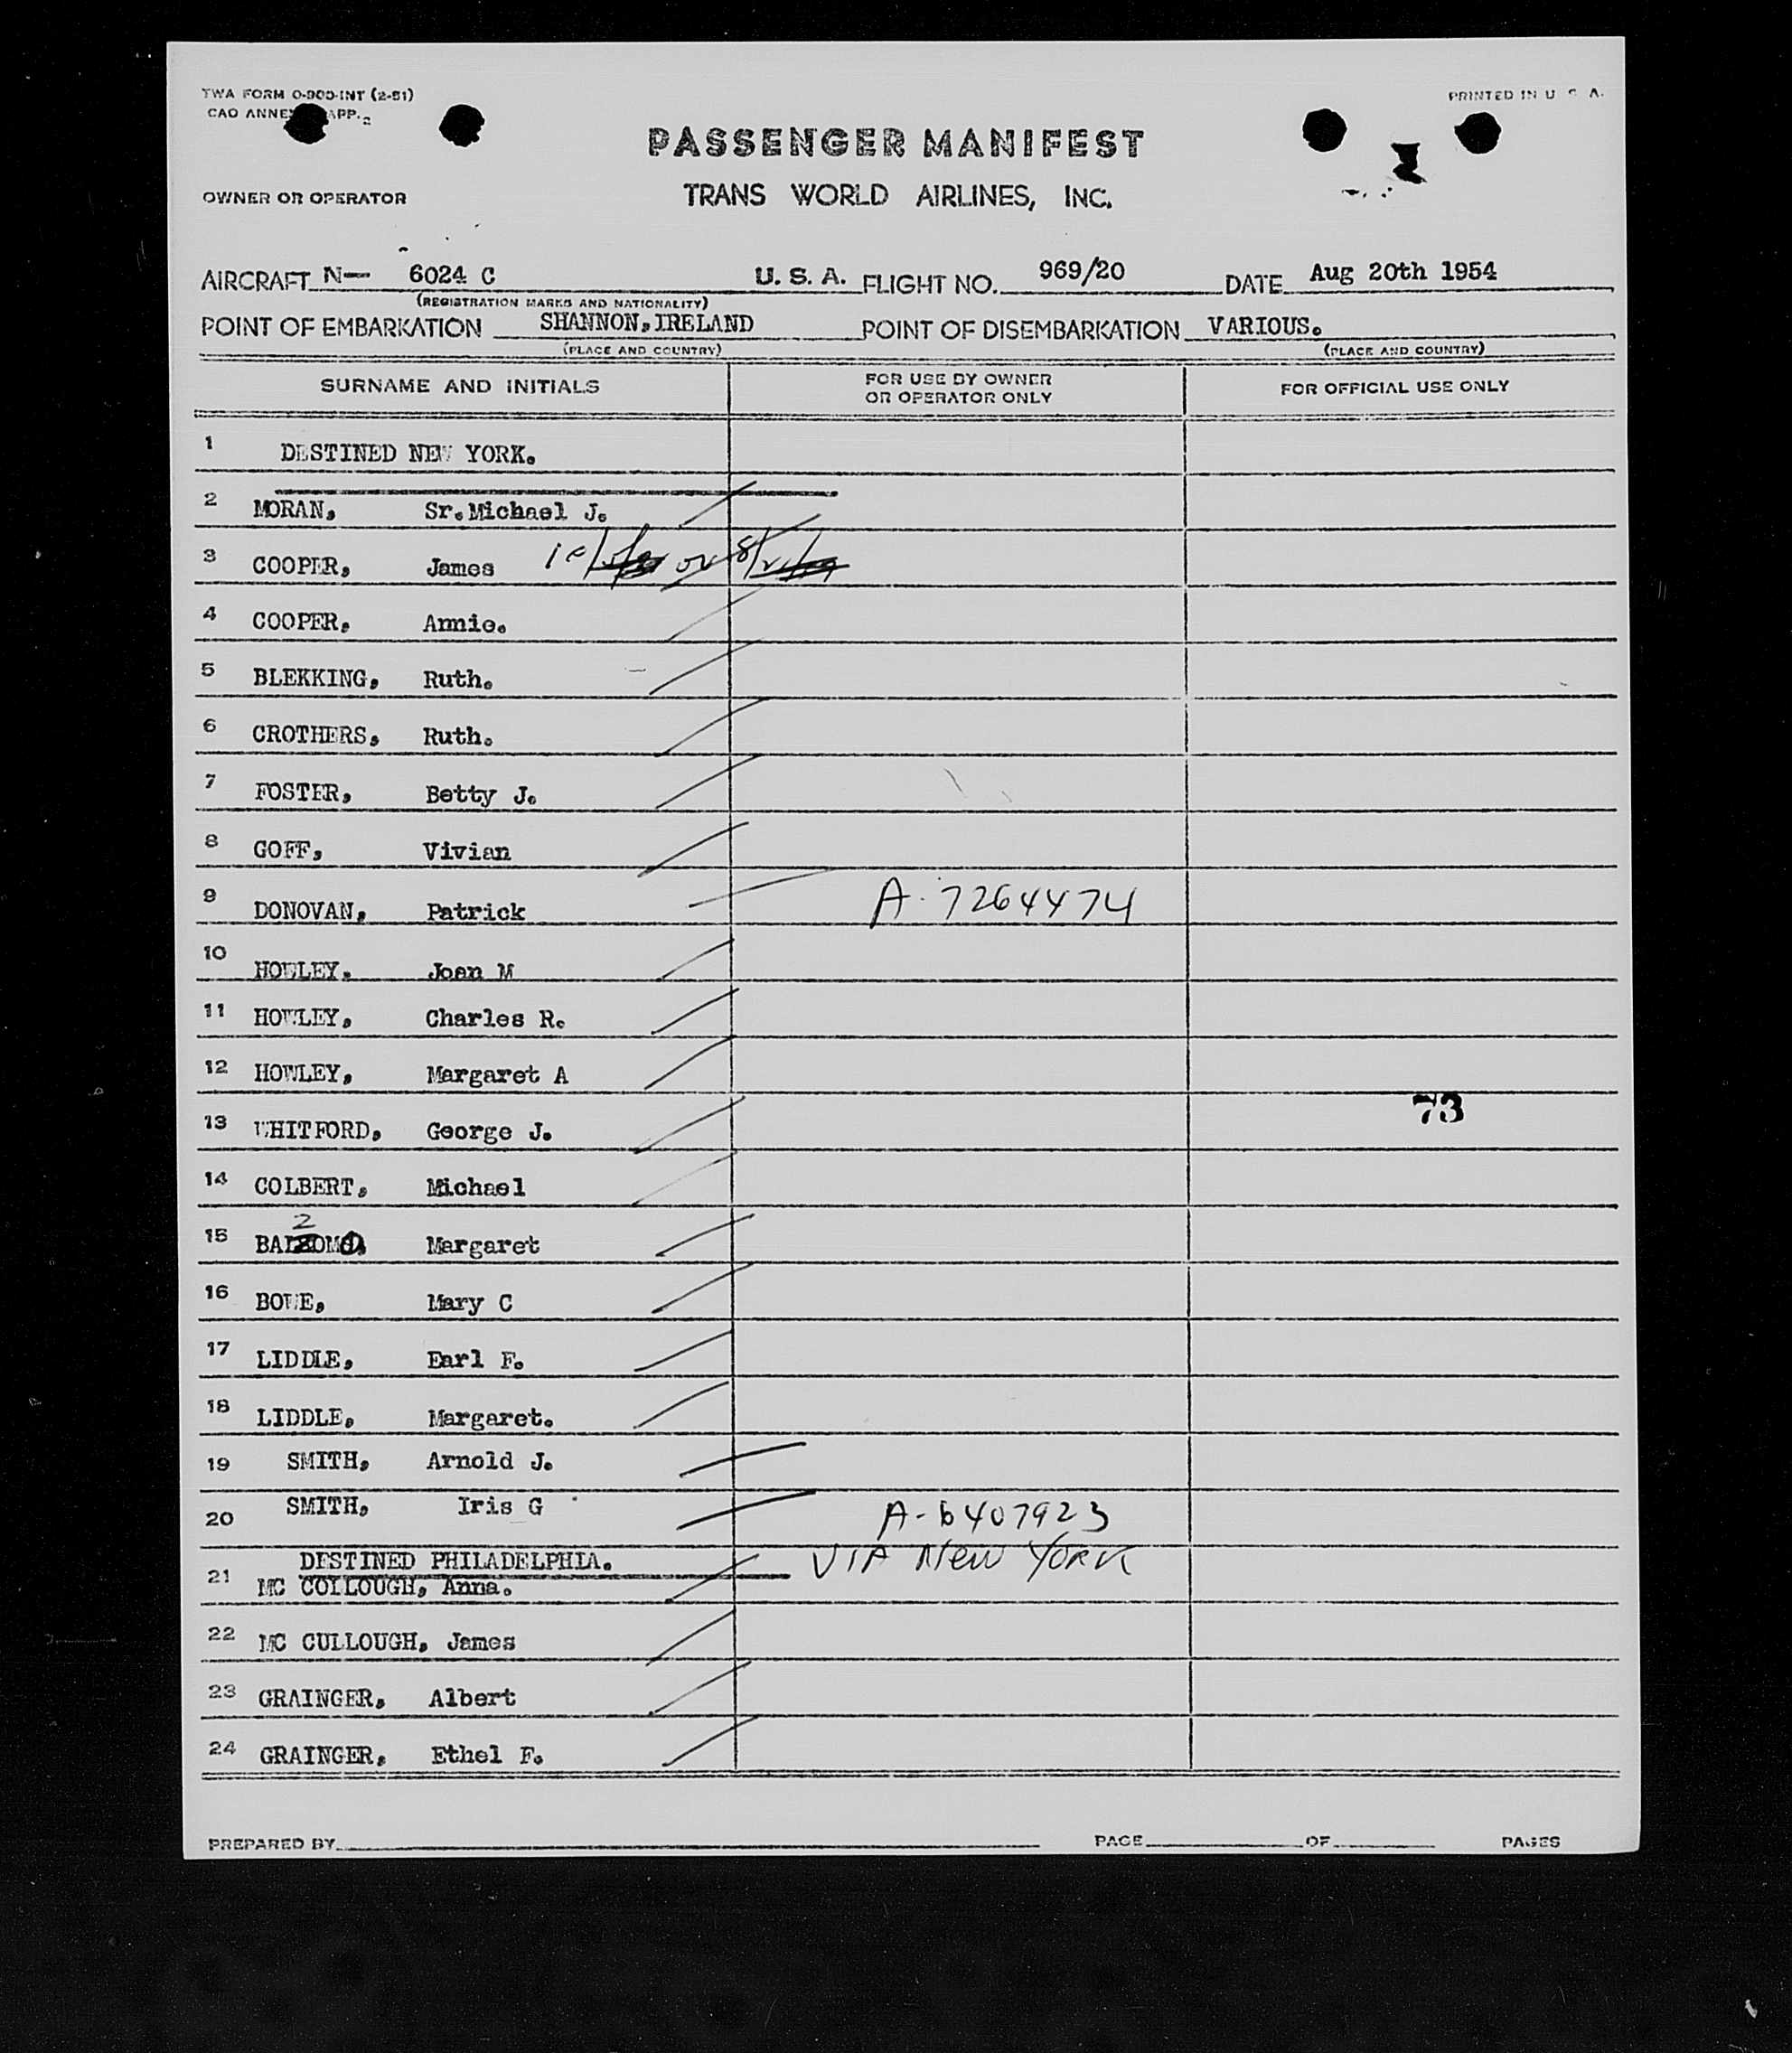 TWA FORM O-900-INT (2-51)
PRINTED IN U S A.
CAO ANNEX APP. 2
PASSENGER MANIFEST
OWNER OR OPERATOR
TRANS WORLD AIRLINES, INC.
AIRCRAFT N— 6024 C U. S. A. FLIGHT NO. 969/20 DATE Aug 20th 1954
(REGISTRATION MARKS AND NATIONALITY)
POINT OF EMBARKATION SHANNON, IRELAND POINT OF DISEMBARKATION VARIOUS.
(PLACE AND COUNTRY) (PLACE AND COUNTRY)
SURNAME AND INITIALS FOR USE BY OWNER OR OPERATOR ONLY FOR OFFICIAL USE ONLY
1 DESTINED NEW YORK.
2 MORAN, Sr.Michael J.
3 COOPER, James
4 COOPER, Annie.
5 BLEKKING, Ruth.
6 CROTHERS, Ruth.
7 FOSTER, Betty J.
8 GOFF, Vivian
9 DONOVAN, Patrick A-7264474
10 HOWLEY, Joan M
11 HOWLEY, Charles R.
12 HOWLEY, Margaret A
73
13 WHITFORD, George J.
14 COLBERT, Michael
15 Margaret
16 BOWE, Mary C
17 LIDDLE, Earl F.
18 LIDDLE, Margaret.
19 SMITH, Arnold J.
20 SMITH, Iris G A-6407923
DESTINED PHILADELPHIA. VIA New YORK
21 MC COLLOUGH, Anna.
22 MC CULLOUGH, James
23 GRAINGER, Albert
24 GRAINGER, Ethel F.
PREPARED BY PAGE OF PAGES